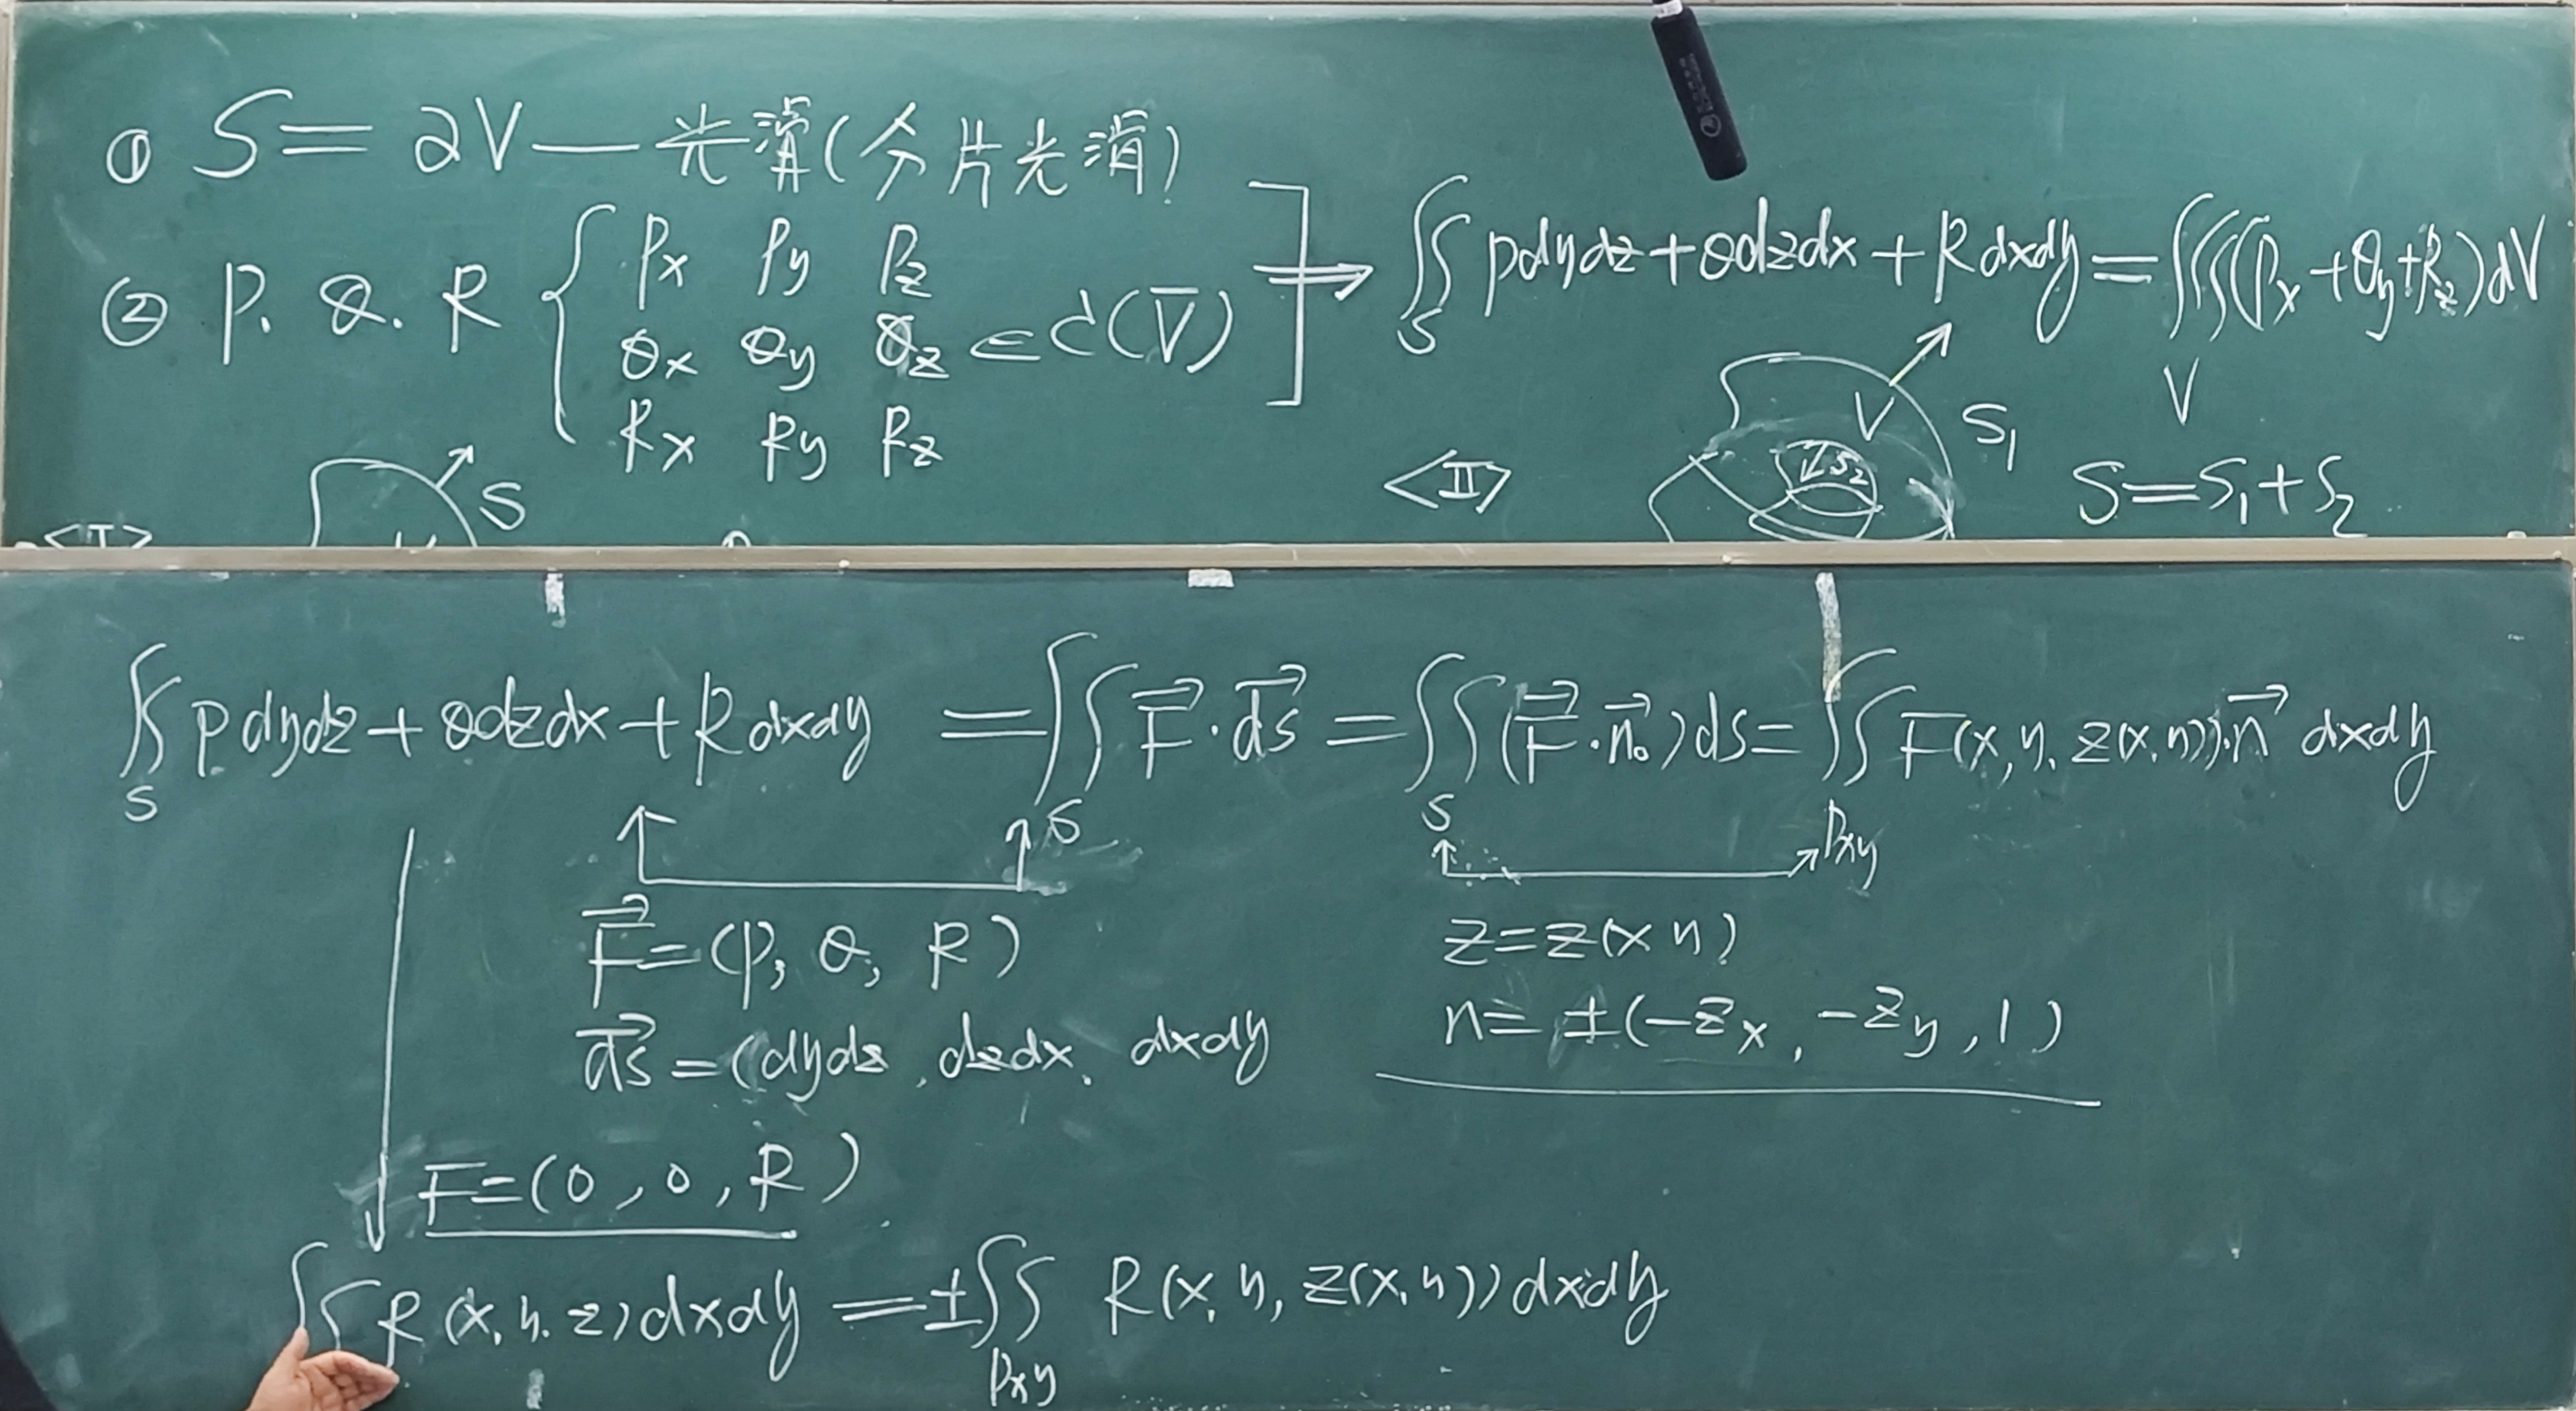 ① S = ∂V — 光滑(分片光滑)
② P. Q. R { Px Py Pz
Qx Qy Qz ∈ C(V̅)
Rx Ry Rz
⇒ ∬_S Pdydz + Qdzdx + Rdxdy = ∭_V (Px + Qy + Rz)dV
<I> S
<II> V S₁ S₂ S = S₁ + S₂
∬_S Pdydz + Qdzdx + Rdxdy = ∬_S F⃗ · d⃗s = ∬_S (F⃗ · n⃗₀)ds = ∬_Dxy F(x, y, z(x, y))·n⃗ dxdy
F⃗ = (P, Q, R)
d⃗s = (dydz, dzdx, dxdy
z = z(x y)
n = ±(-Zx, -Zy, 1)
F = (0, 0, R)
∬ R(x, y, z)dxdy = ±∬_Dxy R(x, y, z(x, y))dxdy